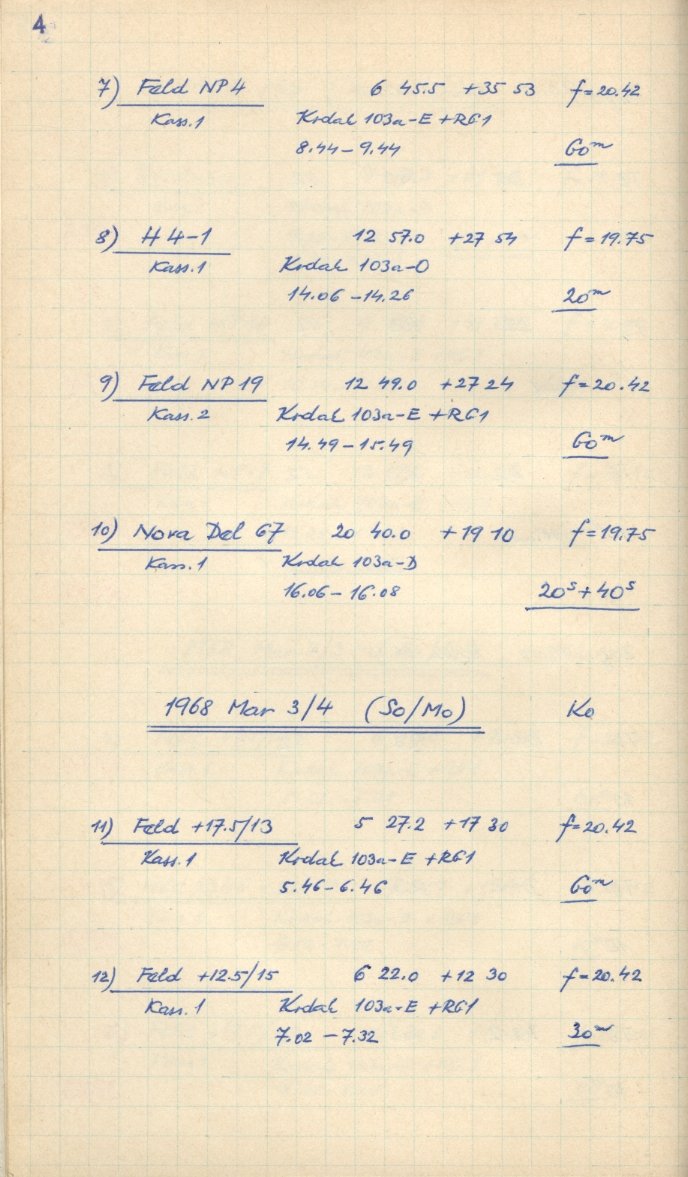 4
7) Feld NP4 6 45.5 +35 53 f=20.42
Kass.1 Kodak 103a-E +RG1
8.44-9.44 60m
8) H4-1 12 57.0 +27 54 f=19.75
Kass.1 Kodak 103a-O
14.06-14.26 20m
9) Feld NP19 12 49.0 +27 24 f=20.42
Kass.2 Kodak 103a-E +RG1
14.49-15.49 60m
10) Nova Del 67 20 40.0 +19 10 f=19.75
Kass.1 Kodak 103a-D
16.06-16.08 20s+40s
1968 Mar 3/4 (So/Mo) Ko
11) Feld +17.5/13 5 27.2 +17 30 f=20.42
Kass.1 Kodak 103a-E +RG1
5.46-6.46 60m
12) Feld +12.5/15 6 22.0 +12 30 f=20.42
Kass.1 Kodak 103a-E +RG1
7.02-7.32 30m